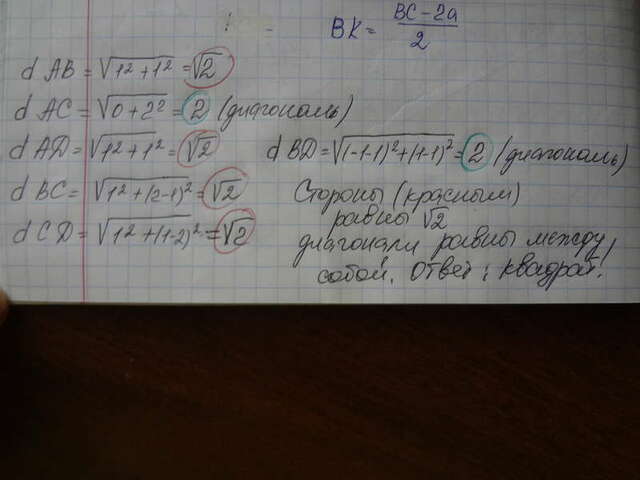 BK = (BC - 2a)/2
d AB = √(1² + 1²) = √2
d AC = √(0 + 2²) = 2 (диагональ)
d AD = √(1² + 1²) = √2
d BD = √((-1-1)² + (1-1)²) = 2 (диагональ)
d BC = √(1² + (2-1)²) = √2
d CD = √(1² + (1-2)²) = √2
Стороны (красным)
равны √2
диагонали равны между
собой. Ответ: квадрат.